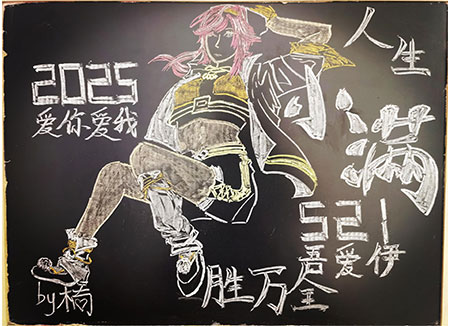 2025
爱你爱我
人生
小满
521
吾爱伊
胜万全
by橘